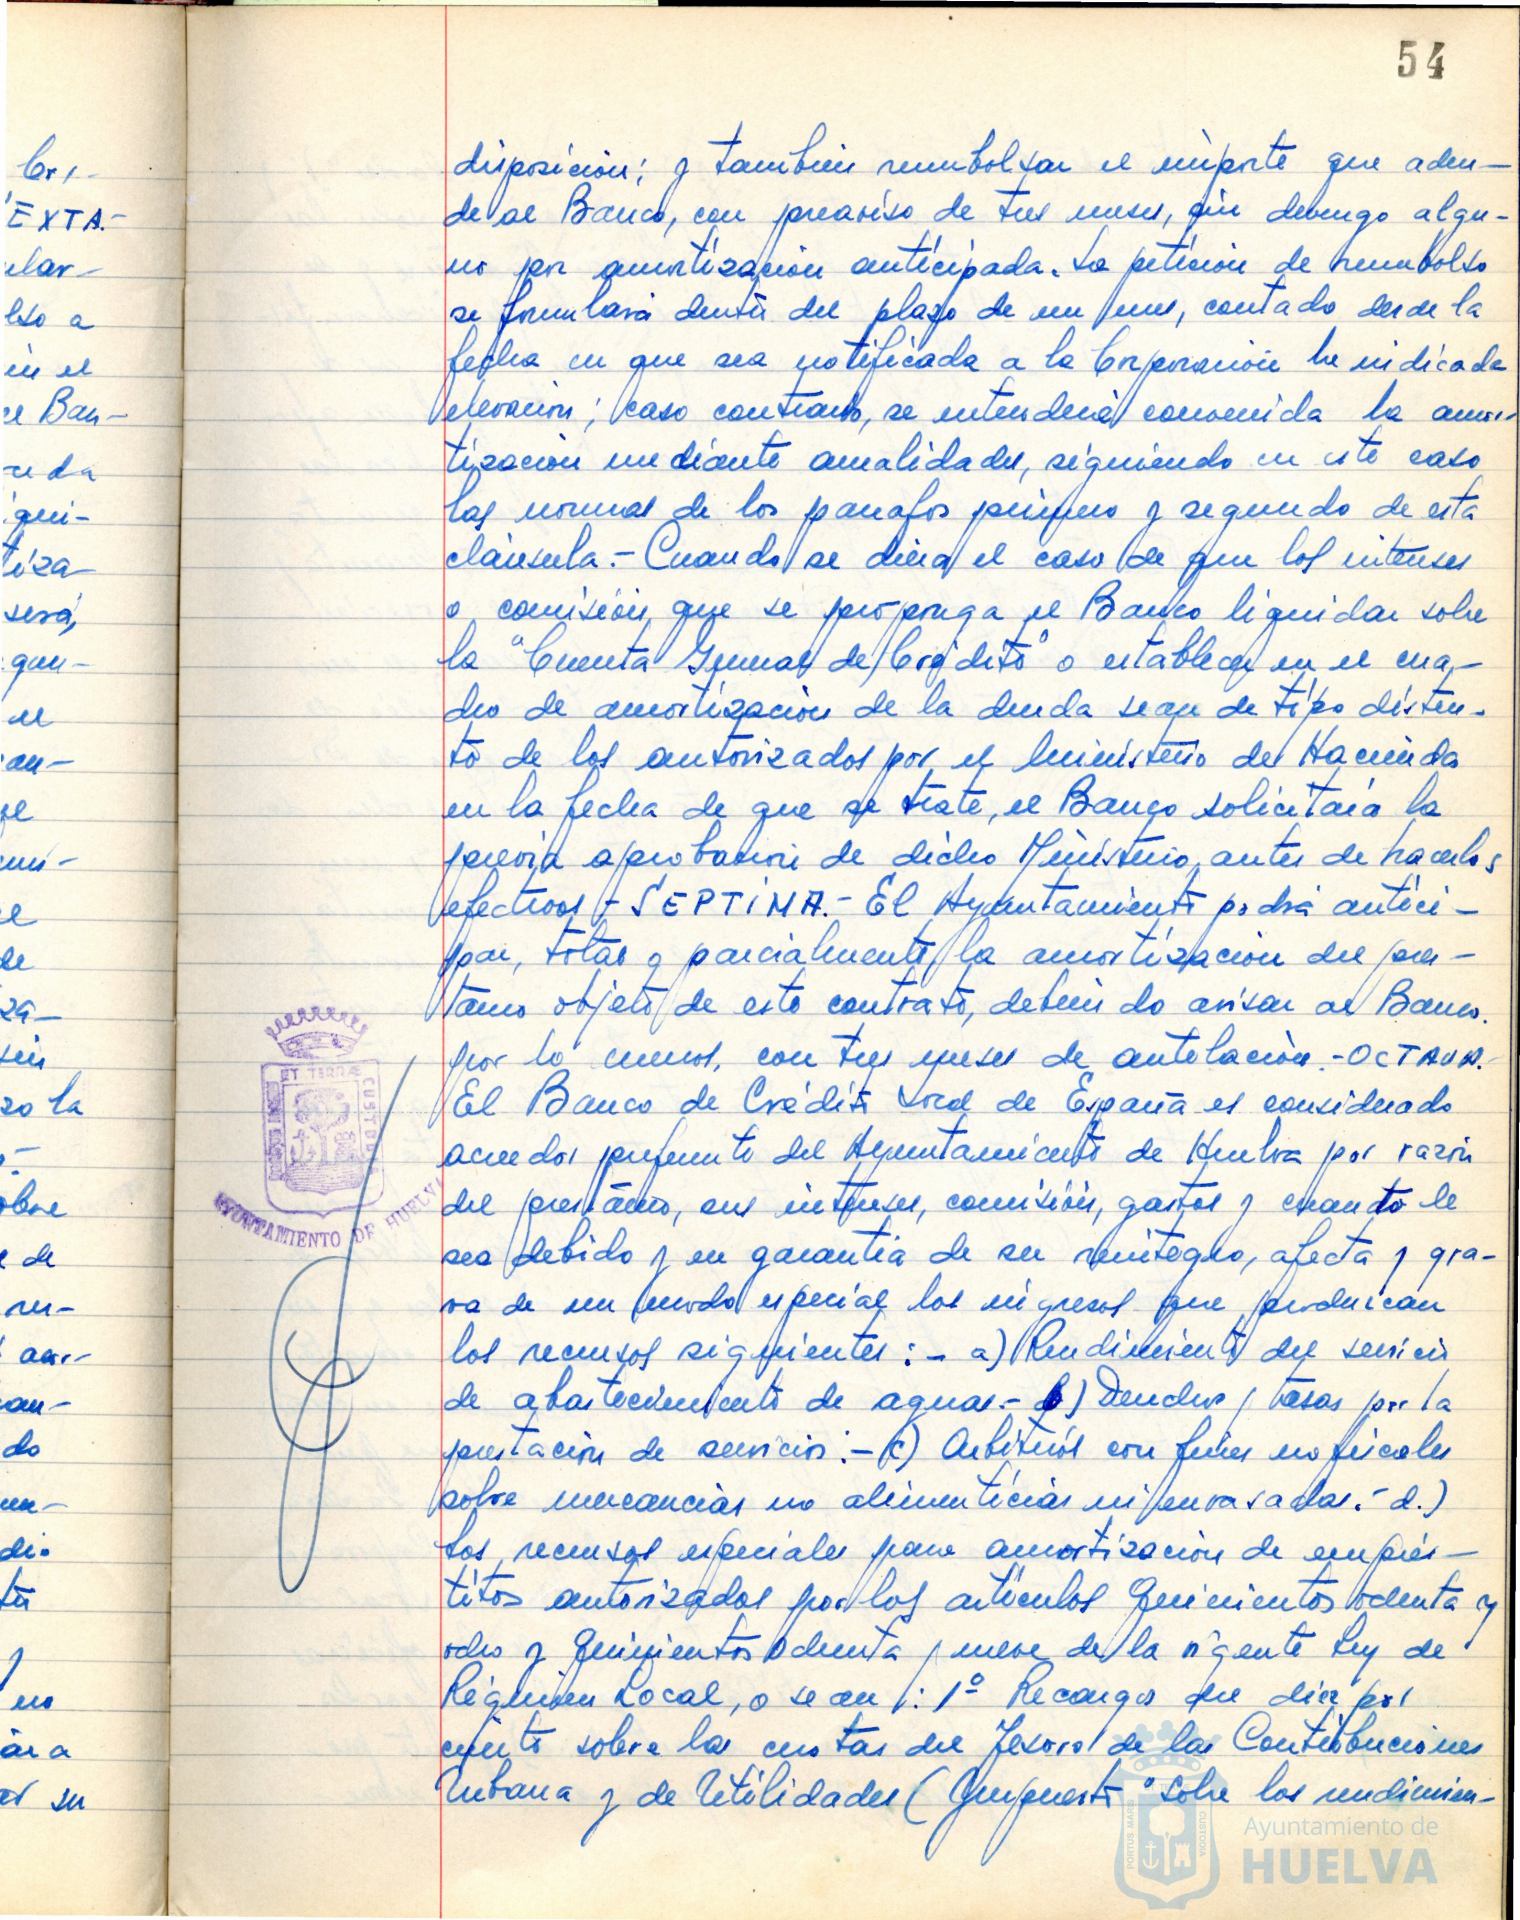 54
disposición; y tambien reembolsar el importe que aden-
de al Banco, con preaviso de tres meses, sin devengo algu-
no por amortización anticipada. La petición de reembolso
se formulará dentro del plazo de un mes, contado desde la
fecha en que sea notificada a la Corporación la indicada
elevación; caso contrario, se entenderá convenida la amor-
tización mediante anualidades, siguiendo en este caso
las normas de los parrafos primero y segundo de esta
cláusula.- Cuando se diera el caso de que los intereses
o comisión que se proponga el Banco liquidar sobre
la "Cuenta General de Crédito" o establecer en el cua-
dro de amortización de la deuda sean de tipo distin-
to de los autorizados por el Ministerio de Hacienda
en la fecha de que se trate, el Banco solicitará la
previa aprobación de dicho Ministerio, antes de hacerlos
efectivos - SEPTIMA.- El Ayuntamiento podrá antici-
par, total o parcialmente, la amortización del pres-
tamo objeto de este contrato, debiendo avisar al Banco.
por lo menos, con tres meses de antelación.- OCTAVA.-
El Banco de Crédito Local de España es considerado
acreedor preferente del Ayuntamiento de Huelva por razón
del prestamo, sus intereses, comisión, gastos y cuanto le
sea debido y en garantia de su reintegro, afecta y gra-
va de un modo especial los ingresos que produzcan
los recursos siguientes: - a) Rendimiento del servicio
de abastecimiento de aguas.- b) Derechos y tasas por la
prestación de servicios:- c) Arbitrios con fines no fiscales
sobre mercancias no alimenticias ni envasadas.- d.)
Los recursos especiales para amortización de emprés-
titos autorizados por los artículos Quinientos ochenta y
ocho y Quinientos ochenta y nueve de la vigente Ley de
Régimen Local, o sean: 1º Recargo del diez por
ciento sobre las cuotas del Tesoro de las Contribuciones
Urbana y de Utilidades (Impuesto "Sobre los rendimien-
ET TERRAE CUSTODIA
AYUNTAMIENTO DE HUELVA
Cor-
EXTA.-
ular-
lso a
in el
el Ban-
qui-
tiza-
será,
el
de
sin
zo la
obre
e de
do
no
ara
su
PORTUS MARIS
CUSTODIA
Ayuntamiento de
HUELVA